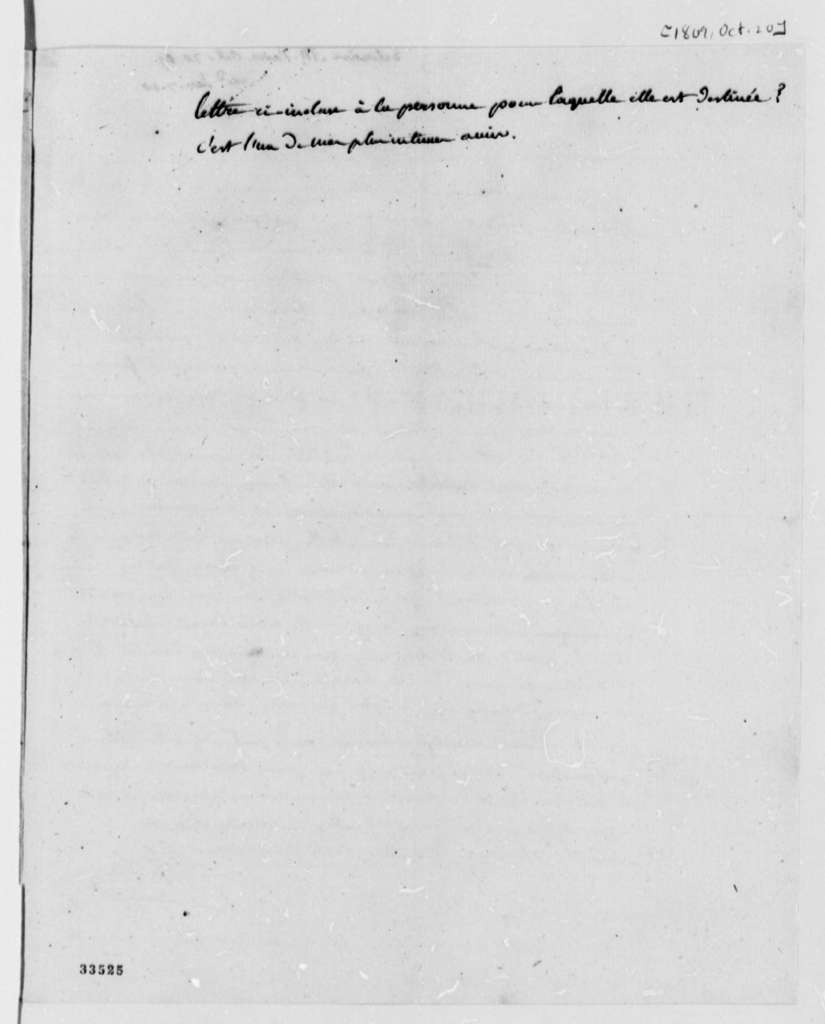 [1809, Oct. 20]
lettre ci-incluse à la personne pour laquelle elle est destinée?
c'est l'un de mes plus intimes amis.
33525